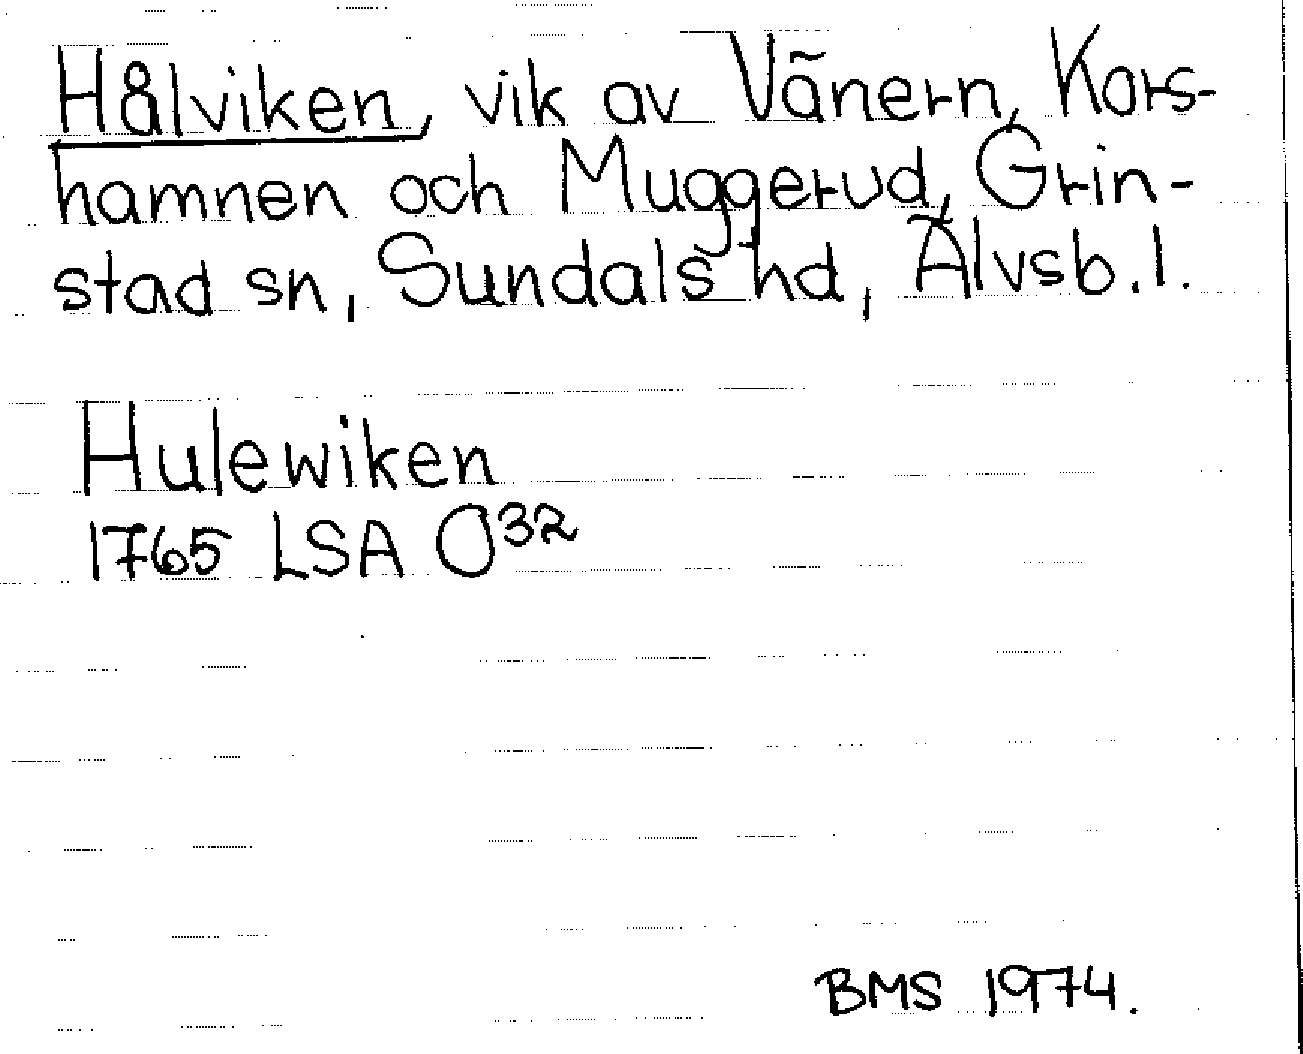 Hålviken, vik av Vänern, Kors-
hamnen och Muggerud, Grin-
stad sn, Sundals hd, Älvsb. l.
Hulewiken
1765 LSA O32
BMS 1974.